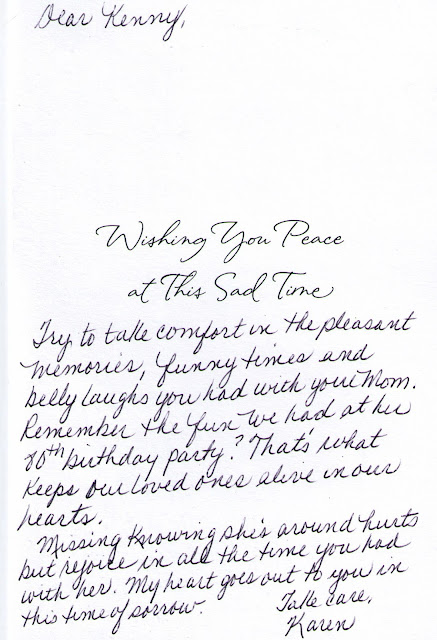 Dear Kenny,
Wishing You Peace
at This Sad Time
Try to take comfort in the pleasant
memories, funny times and
belly laughs you had with your Mom.
Remember the fun we had at her
80th birthday party? That's what
keeps our loved ones alive in our
hearts.
Missing knowing she's around hurts
but rejoice in all the time you had
with her. My heart goes out to you in
this time of sorrow.
Take care,
Karen